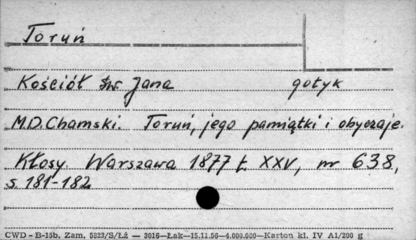 Toruń
Kościół św. Jana gotyk
M.D. Chamski. Toruń, jego pamiątki i obyczaje.
Kłosy. Warszawa 1877 t. XXV, nr 638,
s. 181-182
CWD - B-15b. Zam. 5823/S/Łź — 3016—Łak—15.11.56—4.000.000—Karton kl. IV A1/200 g